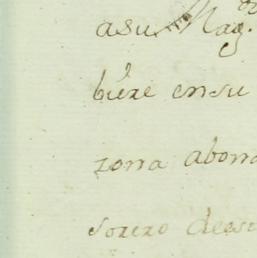 asu Mag.
biere ensu
zona abona
sorero deesu